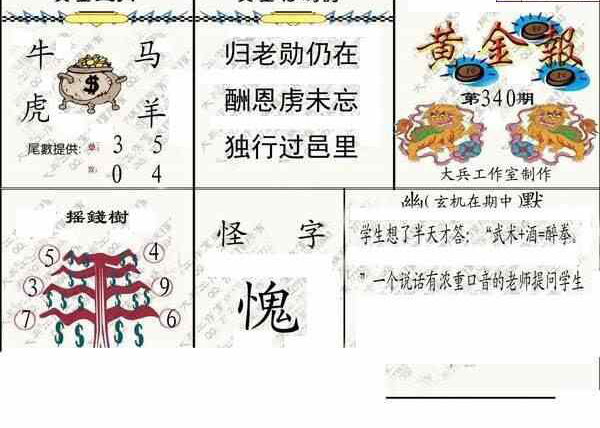 牛 马
虎 羊
尾數提供: 单: 3 5
双: 0 4
归老勋仍在
酬恩虏未忘
独行过邑里
黄金報
第340期
大兵工作室制作
摇錢樹
5 4
3 9
7 6
怪 字
愧
幽(玄机在期中)默
学生想了半天才答：“武术+酒=醉拳。
”一个说话有浓重口音的老师提问学生